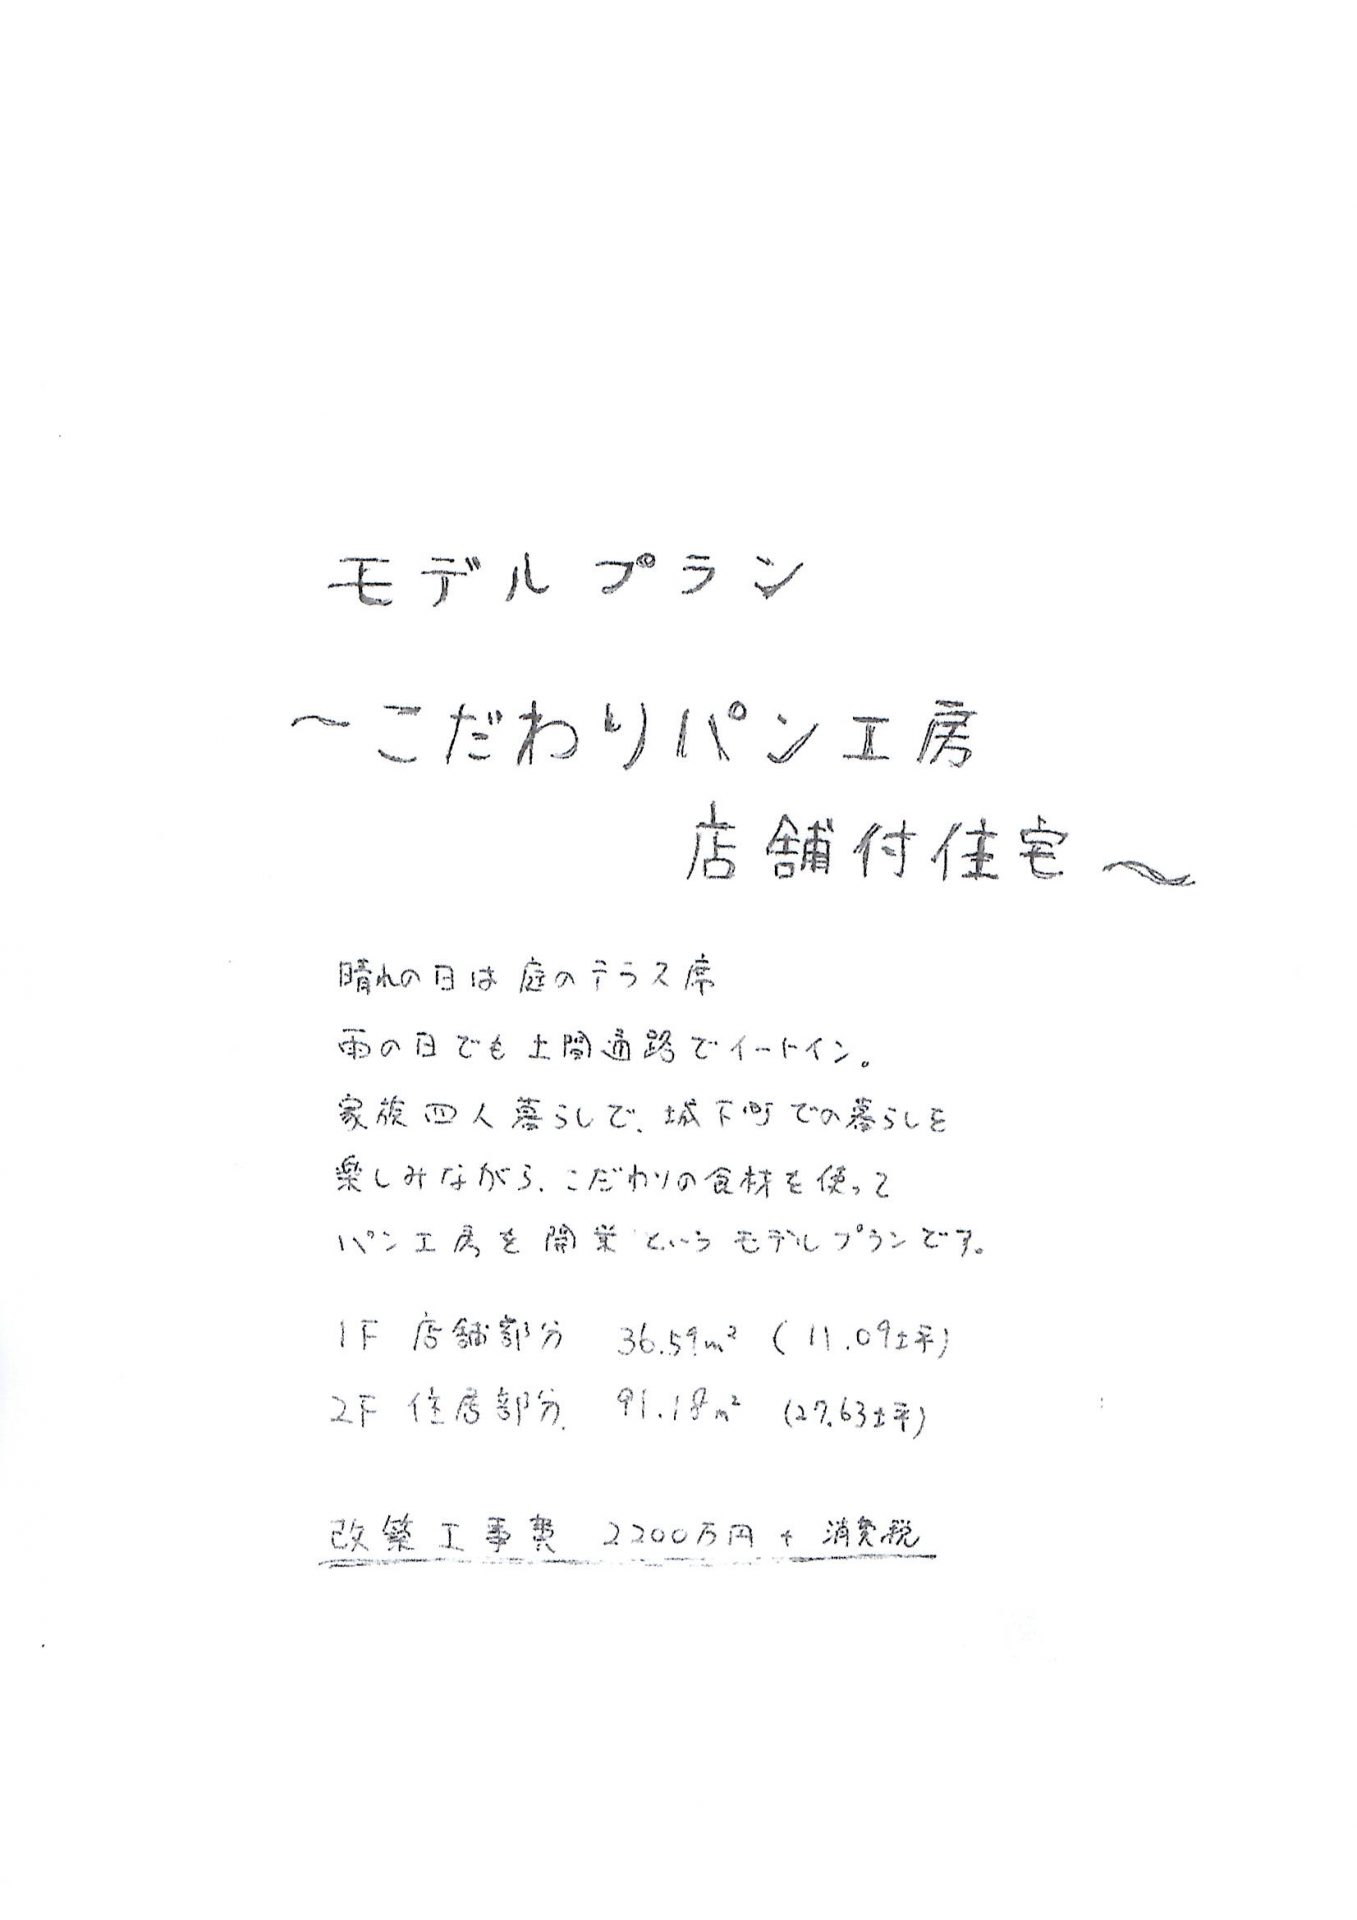 モデルプラン
～こだわりパン工房
店舗付住宅～
晴れの日は庭のテラス席
雨の日でも土間通路でイートイン。
家族四人暮らしで、城下町での暮らしを
楽しみながら、こだわりの食材を使って
パン工房を開業というモデルプランです。
1F 店舗部分 36.59m² (11.09坪)
2F 住居部分 91.18m² (27.63坪)
改築工事費 2200万円+消費税